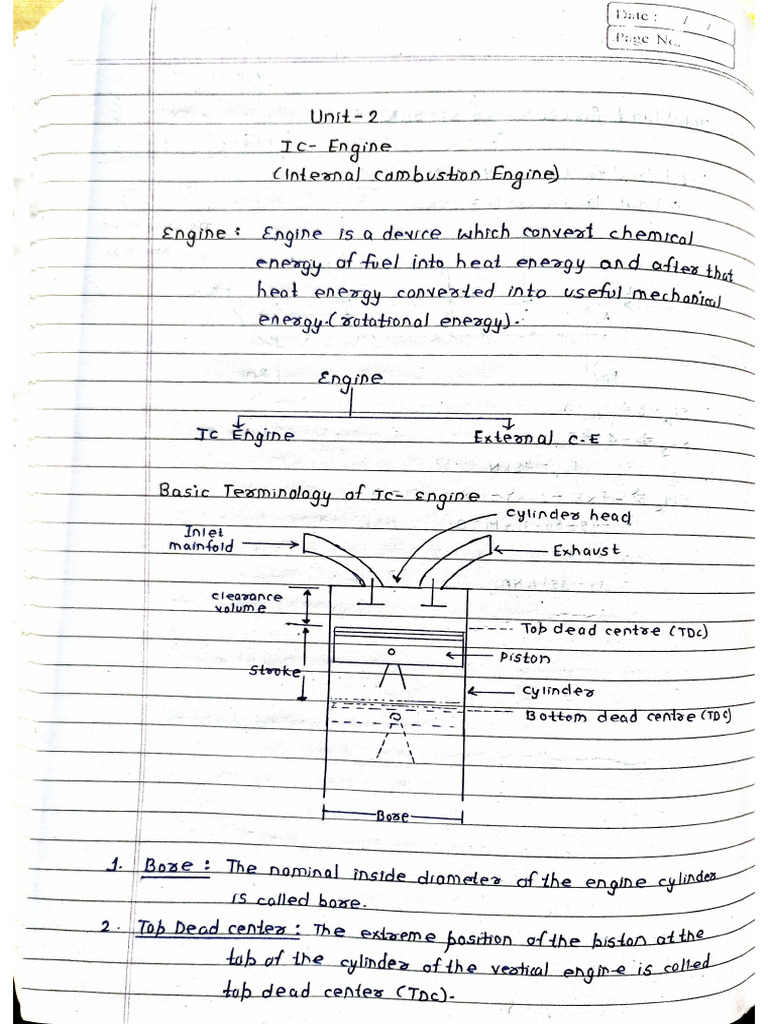 Date : / /
Page No.
Unit-2
Ic- Engine
(Internal Combustion Engine)
Engine : Engine is a device which convert chemical
energy of fuel into heat energy and after that
heat energy converted into useful mechanical
energy.(rotational energy).
Engine
Ic Engine
External C-E
Basic Terminology of Ic- Engine
cylinder head
Inlet
mainfold
Exhaust
clearance
volume
Top dead centre (TDC)
Piston
Stroke
cylinder
Bottom dead centre (TDC)
Bore
1. Bore : The nominal inside diameter of the engine cylinder
is called bore.
2. Top Dead center : The extreme position of the piston at the
top of the cylinder of the vertical engine is called
top dead center (TDC).